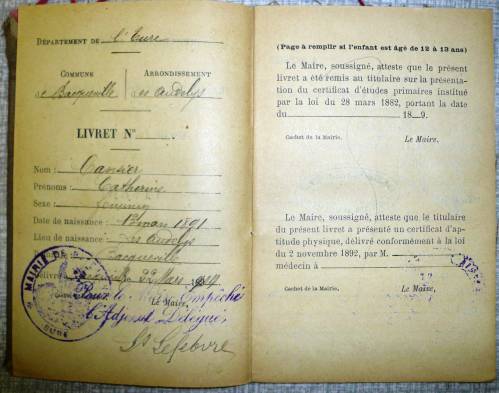 DÉPARTEMENT DE l'Eure
COMMUNE ARRONDISSEMENT
de Bacqueville Les Andelys
LIVRET N°
Nom :
Prénoms : Catherine
Sexe : féminin
Date de naissance : 1891
Lieu de naissance : Les Andelys
Bacqueville
22 Mars
MAIRIE DE
EURE
Pour le Maire empêché
Le Maire,
L'Adjoint Délégué,
Lefebvre
(Page à remplir si l'enfant est âgé de 12 à 13 ans)
Le Maire, soussigné, atteste que le présent
livret a été remis au titulaire sur la présenta-
tion du certificat d'études primaires institué
par la loi du 28 mars 1882, portant la date
du 18 9.
Cachet de la Mairie. Le Maire,
Le Maire, soussigné, atteste que le titulaire
du présent livret a présenté un certificat d'ap-
titude physique, délivré conformément à la loi
du 2 novembre 1892, par M.
médecin à
Cachet de la Mairie. Le Maire,